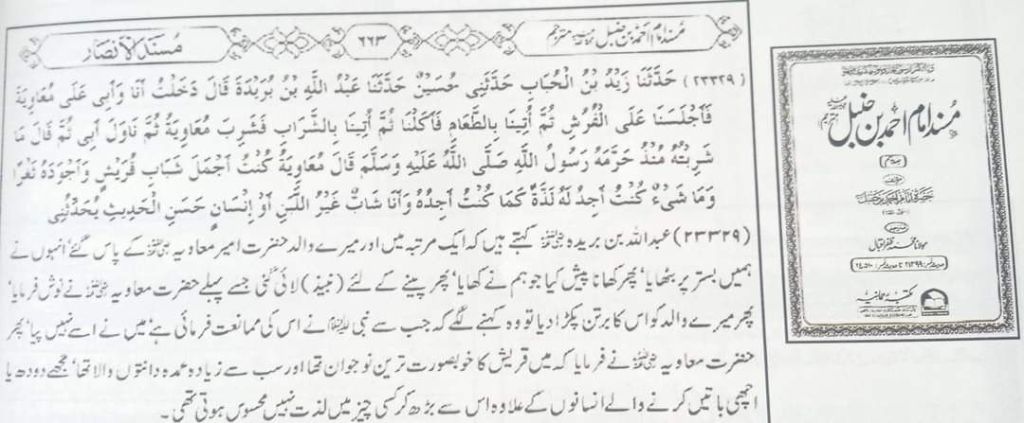 مُسند امام احمد بن حنبل مترجم
۶۶۳
مُسْنَدُ الْاَنْصَار
(۲۳۳۲۹) حَدَّثَنَا زَيْدُ بْنُ الْحُبَابِ حَدَّثَنِي حُسَيْنٌ حَدَّثَنَا عَبْدُ اللَّهِ بْنُ بُرَيْدَةَ قَالَ دَخَلْتُ أَنَا وَأَبِي عَلَى مُعَاوِيَةَ
فَأَجْلَسَنَا عَلَى الْفُرُشِ ثُمَّ أُتِينَا بِالطَّعَامِ فَأَكَلْنَا ثُمَّ أُتِينَا بِالشَّرَابِ فَشَرِبَ مُعَاوِيَةُ ثُمَّ نَاوَلَ أَبِي ثُمَّ قَالَ مَا
شَرِبْتُهُ مُنْذُ حَرَّمَهُ رَسُولُ اللَّهِ صَلَّى اللَّهُ عَلَيْهِ وَسَلَّمَ قَالَ مُعَاوِيَةُ كُنْتُ أَجْمَلَ شَبَابِ قُرَيْشٍ وَأَجْوَدَهُ ثَغْرًا
وَمَا شَيْءٌ كُنْتُ أَجِدُ لَهُ لَذَّةً كَمَا كُنْتُ أَجِدُهُ وَأَنَا شَابٌّ غَيْرُ اللَّبَنِ أَوْ إِنْسَانٍ حَسَنِ الْحَدِيثِ يُحَدِّثُنِي
(۲۳۳۲۹) عبداللہ بن بریدہ کہتے ہیں کہ ایک مرتبہ میں اور میرے والد حضرت امیر معاویہ کے پاس گئے' انہوں نے
ہمیں بستر پر بٹھایا' پھر کھانا پیش کیا جو ہم نے کھایا' پھر پینے کے لئے (نبیذ) لائی گئی جسے پہلے حضرت معاویہ نے نوش فرمایا'
پھر میرے والد کو اس کا برتن پکڑا دیا تو وہ کہنے لگے کہ جب سے نبی نے اس کی ممانعت فرمائی ہے' میں نے اسے نہیں پیا' پھر
حضرت معاویہ نے فرمایا کہ میں قریش کا خوبصورت ترین نوجوان تھا اور سب سے زیادہ عمدہ دانتوں والا تھا' مجھے دودھ یا
اچھی باتیں کرنے والے انسانوں کے علاوہ اس سے بڑھ کر کسی چیز میں لذت نہیں محسوس ہوتی تھی۔
مُسند امام احمد بن حنبل
مترجم
مولانا محمد ظفر اقبال
مکتبہ رحمانیہ